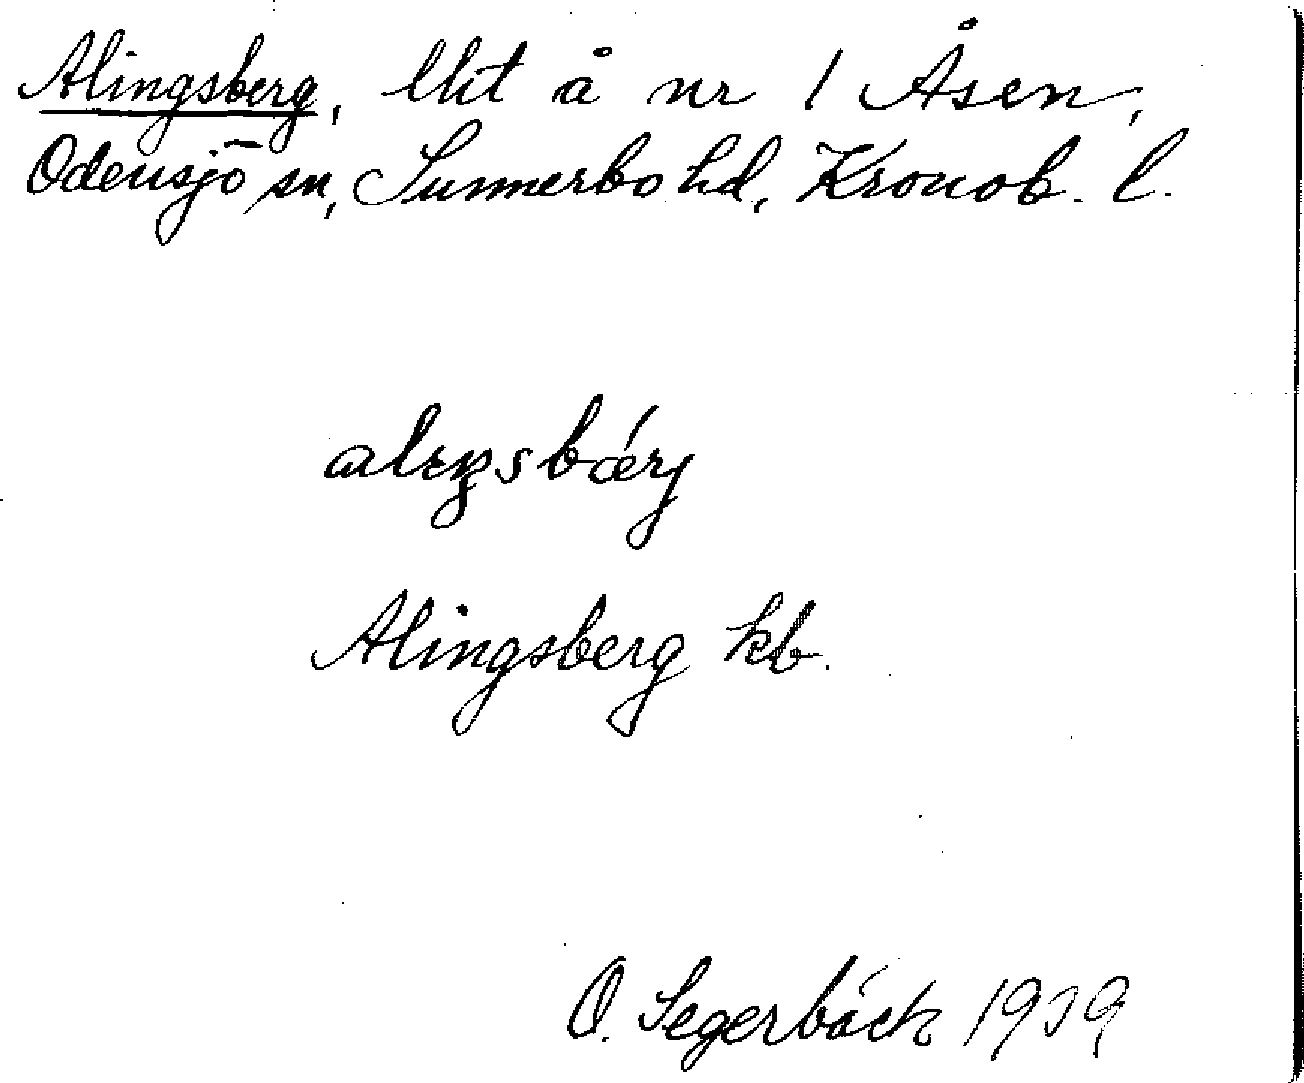 Alingsberg, lht å nr 1 Åsen,
Odensjö sn, Sunnerbo hd, Kronob. l.
Alingsberg kb.
O. Segerbäck 1939